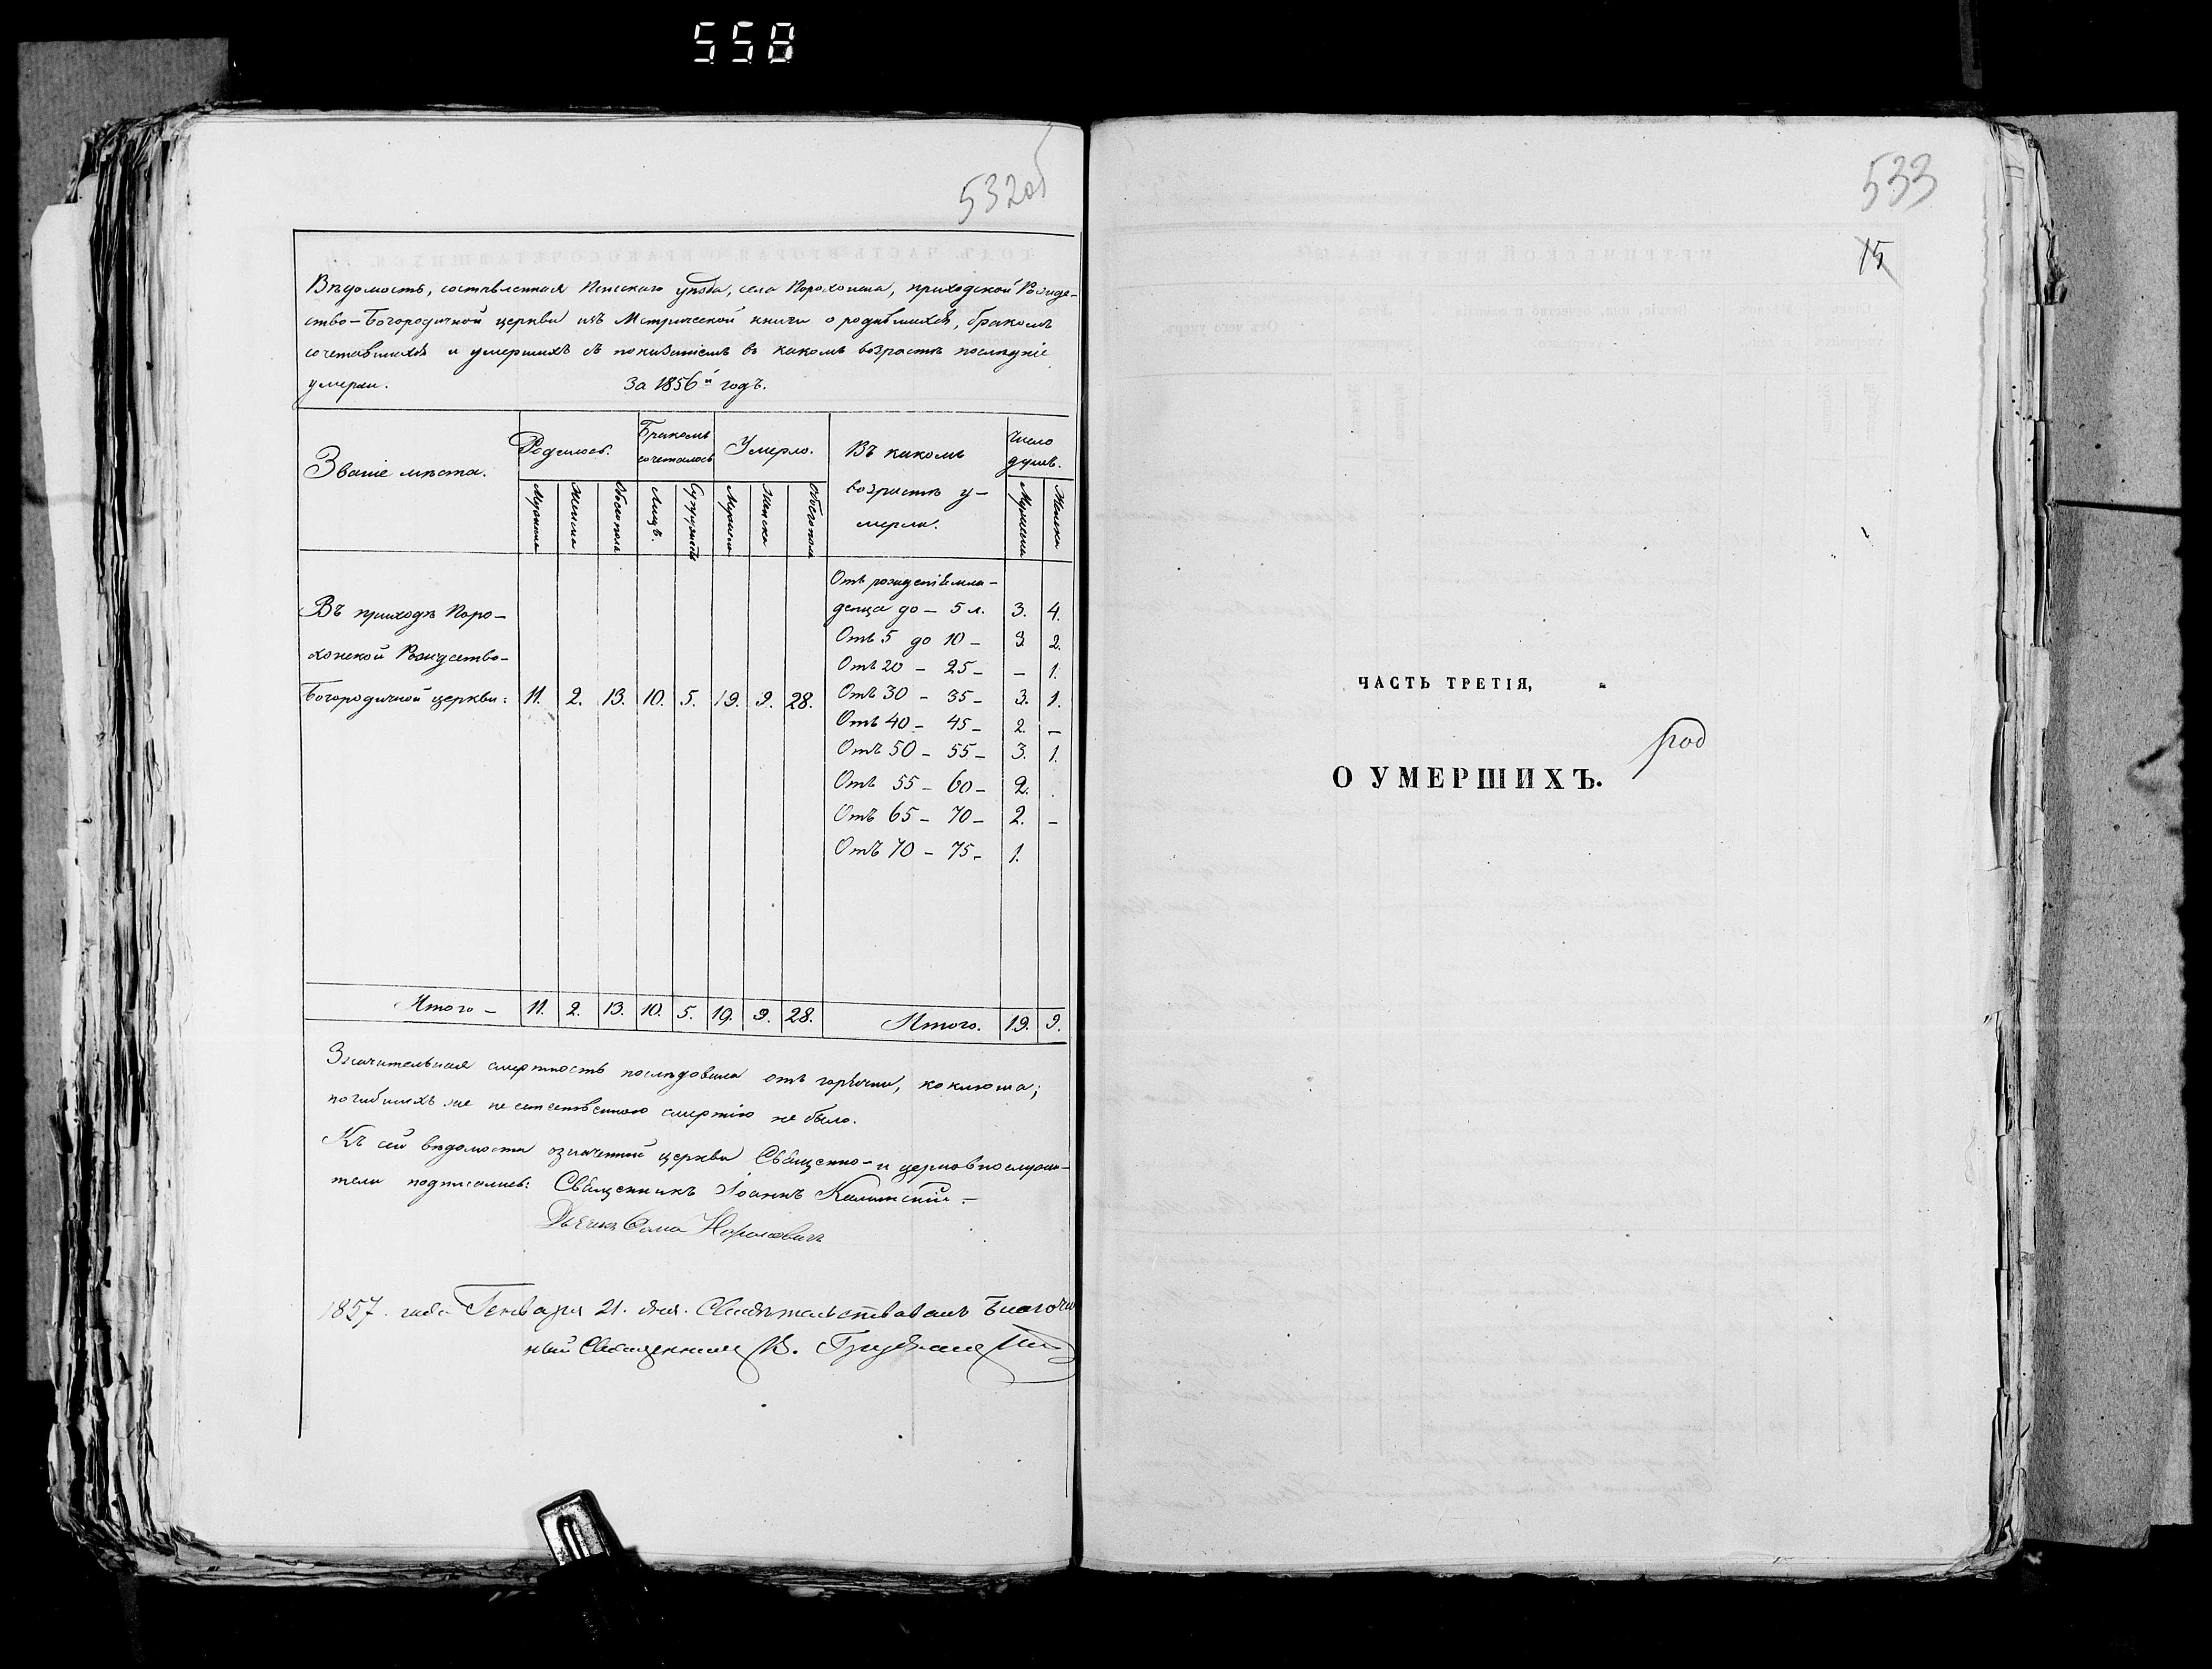 558
532об
Вѣдомость, составленная Пинскаго уѣзда, села Порохонска, приходской Рожде-
ство-Богородичной церкви изъ Метрической книги о родившихся, бракомъ
сочетавшихся и умершихъ съ показаніемъ въ какомъ возрастѣ послѣдніе
умерли. За 1856й годъ.
Званіе мѣста. Родилось. Бракомъ сочеталось Умерло. Въ какомъ возрастѣ у-мерли. Число душъ.
Мужеска Женска Обоего пола Лицъ. Супружествъ Мужеска Женска Обоего пола Мужеска Женска
Отъ рожденія мла-
денца до - 5 л. 3. 4.
Въ приходѣ Поро-
Отъ 5 до 10 - 3 2.
хонской Рождество-
Отъ 20 - 25 - - 1.
Богородичной церкви: 11. 2. 13. 10. 5. 19. 9. 28. Отъ 30 - 35 - 3. 1.
Отъ 40 - 45 - 2. -
Отъ 50 - 55 - 3. 1.
Отъ 55 - 60 - 2.
Отъ 65 - 70 - 2. -
Отъ 70 - 75 - 1.
Итого - 11. 2. 13. 10. 5. 19. 9. 28. Итого. 19. 9.
Значительная смертность послѣдовала отъ горячки, коклюша;
погибшихъ же не естественною смертію не было.
Къ сей вѣдомости означенной церкви Священно- и церковнослужи-
тели подписались: Священникъ Іоаннъ Калинскій -
Дьячекъ Ѳома
1857. года Генваря 21. дня. Свидѣтельствовалъ Благочин
ный Священникъ В.
533
15
ЧАСТЬ ТРЕТІЯ,
род
О УМЕРШИХЪ.